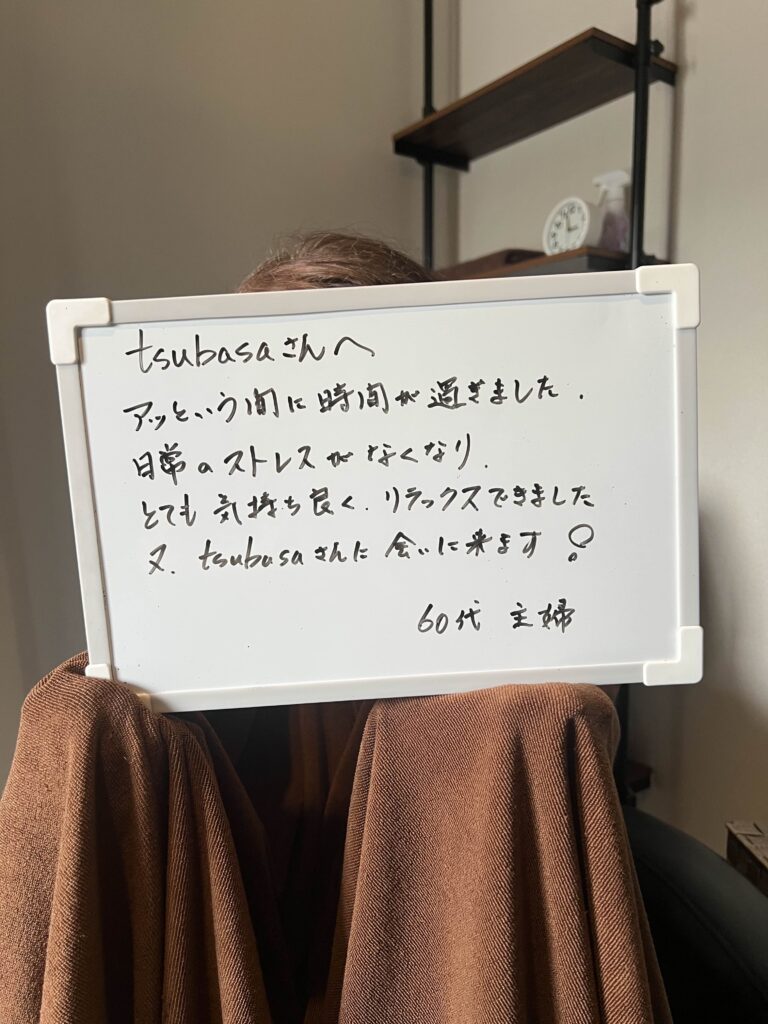 tsubasaさんへ
アッという間に時間が過ぎました.
日常のストレスがなくなり.
とても気持ち良く.リラックスできました
又.tsubasaさんに会いに来ます!
60代 主婦